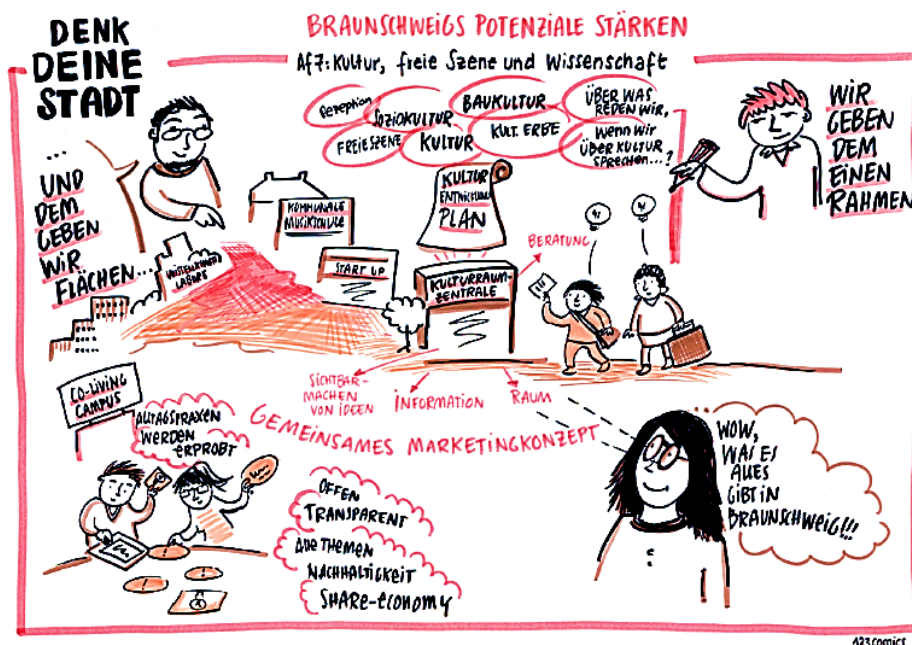 DENK
DEINE
STADT
BRAUNSCHWEIGS POTENZIALE STÄRKEN
Af7: Kultur, freie Szene und Wissenschaft
Rezeption
SOZIOKULTUR
BAUKULTUR
ÜBER WAS
REDEN WIR,
FREIE SZENE
KULTUR
KULT. ERBE
Wenn wir
ÜBER KULTUR
SPRECHEN...?
WIR
GEBEN
DEM
EINEN
RAHMEN
...
UND
DEM
GEBEN
WIR
FLÄCHEN...
KOMMUNALE
MUSIKSCHULE
KULTUR
ENTWICKLUNGS
PLAN
START UP
KULTURRAUM-
ZENTRALE
BERATUNG
SICHTBAR-
MACHEN
VON IDEEN
INFORMATION
RAUM
GEMEINSAMES MARKETINGKONZEPT
CO-LIVING
CAMPUS
ALLTAGSPRAXEN
WERDEN
ERPROBT
OFFEN
TRANSPARENT
ALLE THEMEN
NACHHALTIGKEIT
SHARE-ECONOMY
WOW,
WAS ES
ALLES
GIBT IN
BRAUNSCHWEIG!!!
123comics